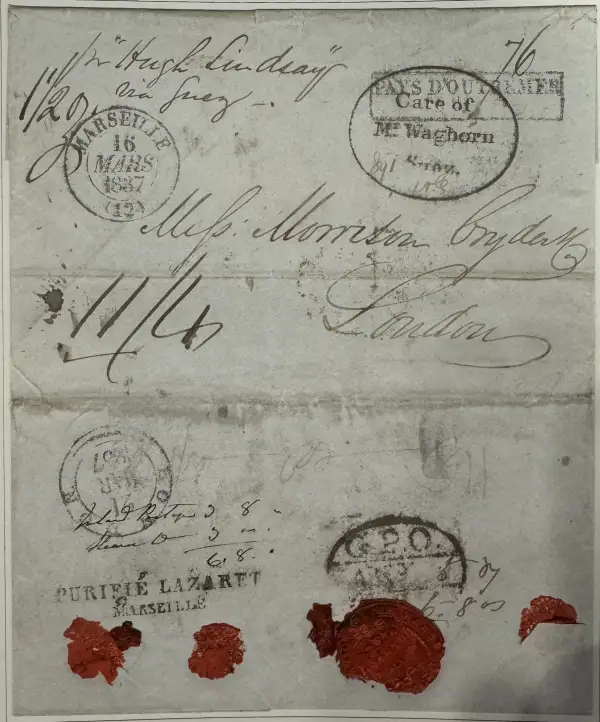 pr "Hugh Lindsay"
via Suez
76
1/20
PAYS D'OUTREMER
Care of
Mr Waghorn
Suez.
MARSEILLE
16
MARS
1837
(12)
Messrs Morrison Cryder & Co
London
11/4
1837
MAR
Inland Postage 3 .. 8 ..
Steam Do 3 ..
6 .. 8 ..
PURIFIÉ LAZARET
MARSEILLE
G.P.O.
6 .. 8 as